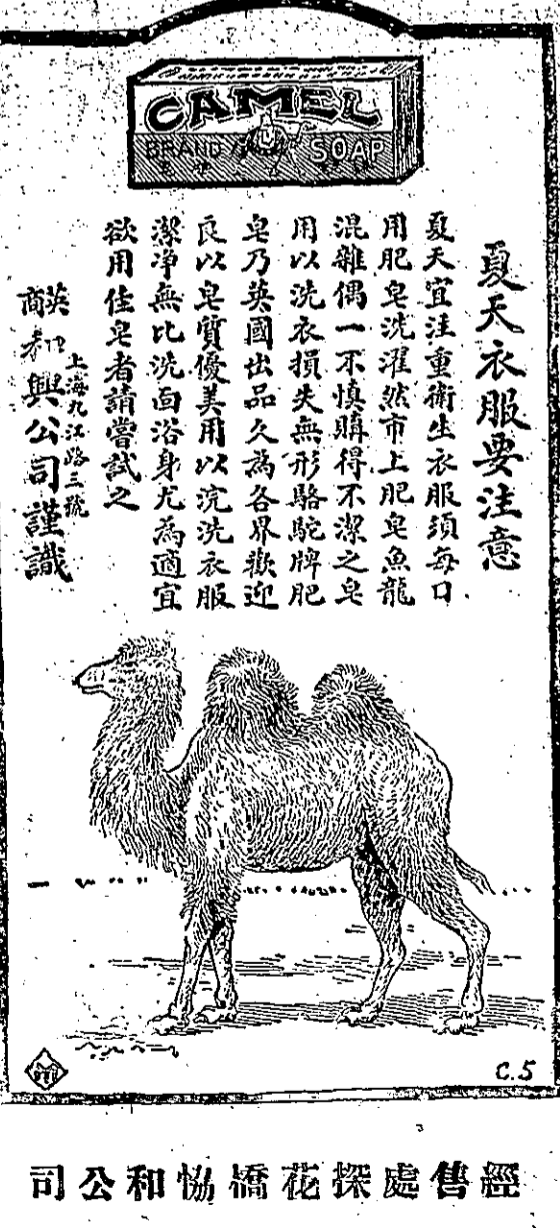 CAMEL
BRAND SOAP
夏天衣服要注意
夏天宜注重衛生衣服須每口
用肥皂洗濯然市上肥皂魚龍
混雜偶一不慎購得不潔之皂
用以洗衣損失無形駱駝牌肥
皂乃英國出品久為各界歡迎
良以皂質優美用以浣洗衣服
潔淨無比洗面浴身尤為適宜
欲用佳皂者請嘗試之
上海九江路三號
英商和興公司謹識
C.5
經售處探花橋協和公司